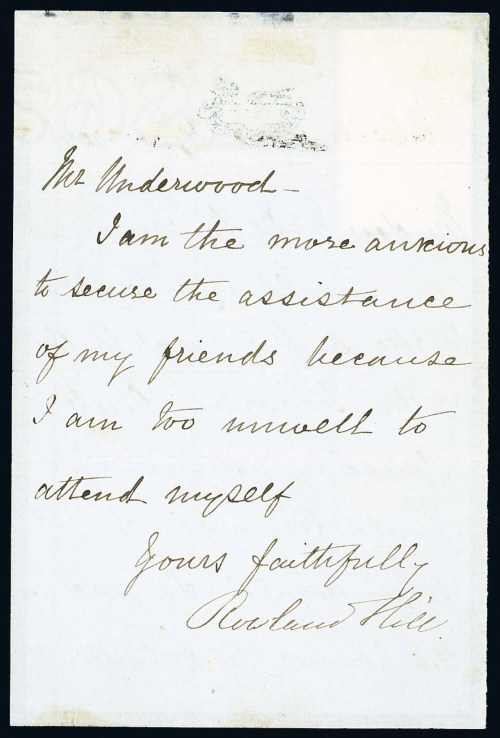 Mr Underwood —
I am the more anxious
to secure the assistance
of my friends because
I am too unwell to
attend myself
Yours faithfully
Rowland Hill